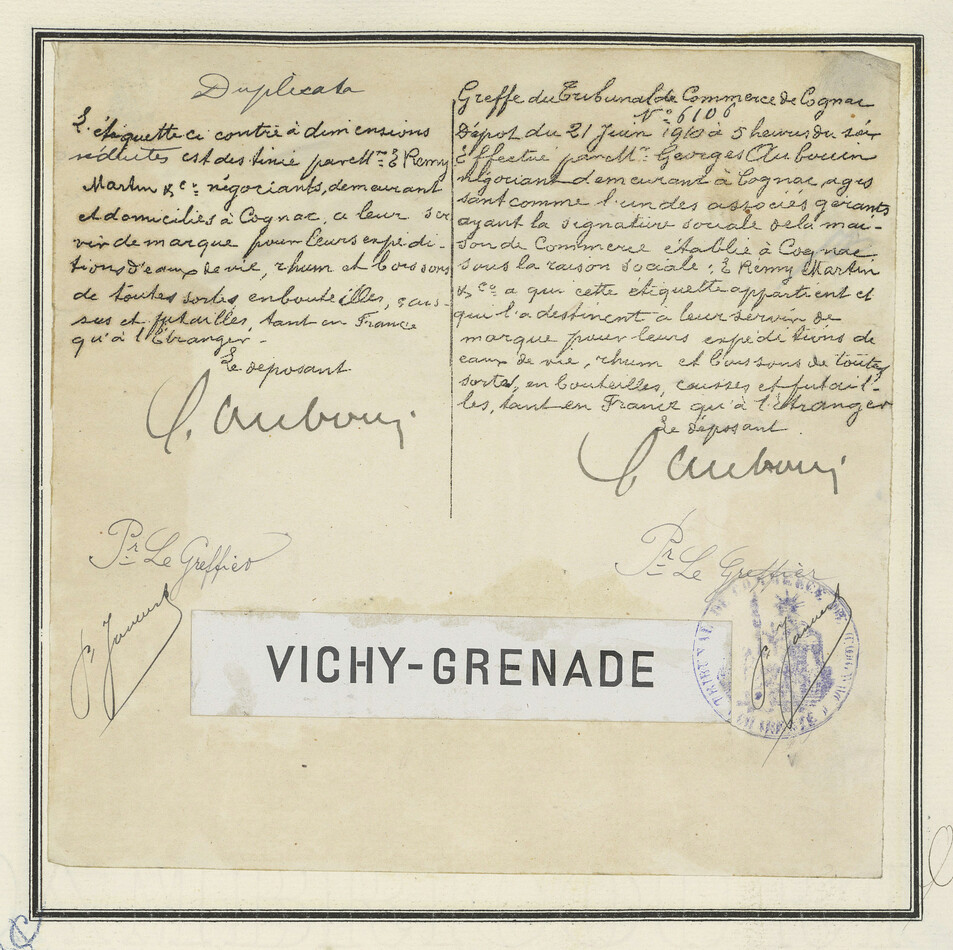 Duplicata
L'étiquette ci contre à dimensions
réduites est destinée par MM. E Remy
Martin & Co. négociants, demeurant
et domiciliés à Cognac, a leur ser
vir de marque pour leurs expédi-
tions d'eaux de vie, rhum et boissons
de toutes sortes en bouteilles, cais-
ses et futailles, tant en France
qu'à l'Etranger-
Le déposant
Pr Le Greffier
Greffe du Tribunal de Commerce de Cognac
No 6106
Dépot du 21 Juin à 5 heures du soir
Effectué par Mr. Georges Aubouin
négociant demeurant à Cognac, agis
sant comme l'un des associés gérants
ayant la signature sociale de la mai-
son de Commerce établie à Cognac
sous la raison sociale: E Remy Martin
& Co a qui cette étiquette appartient et
qui l'a destinent a leur servir de
marque pour leurs expéditions de
eaux de vie, rhum et boissons de toutes
sortes, en bouteilles, caisses et futail-
les, tant en France qu'à l'étranger
Le déposant
Pr Le Greffier
VICHY-GRENADE
TRIBUNAL DE COMMERCE DE COGNAC